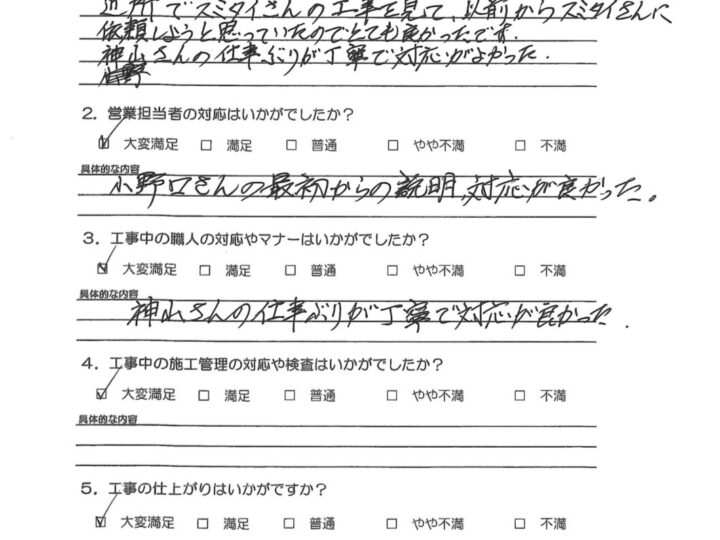 近所でスミタイさんの工事を見て、以前からスミタイさんに
依頼しようと思っていたのでとても良かったです.
神山さんの仕事ぶりが丁寧で対応がよかった.
2. 営業担当者の対応はいかがでしたか?
☑ 大変満足 □ 満足 □ 普通 □ やや不満 □ 不満
具体的な内容
小野口さんの最初からの説明、対応が良かった。
3. 工事中の職人の対応やマナーはいかがでしたか?
☑ 大変満足 □ 満足 □ 普通 □ やや不満 □ 不満
具体的な内容
神山さんの仕事ぶりが丁寧で対応が良かった.
4. 工事中の施工管理の対応や検査はいかがでしたか?
☑ 大変満足 □ 満足 □ 普通 □ やや不満 □ 不満
具体的な内容
5. 工事の仕上がりはいかがですか?
☑ 大変満足 □ 満足 □ 普通 □ やや不満 □ 不満